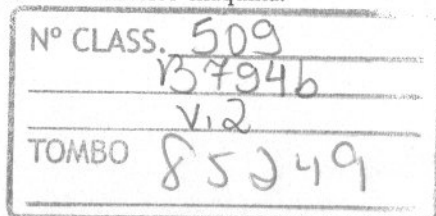 Nº CLASS. 509
B794b
V.2
TOMBO 85249